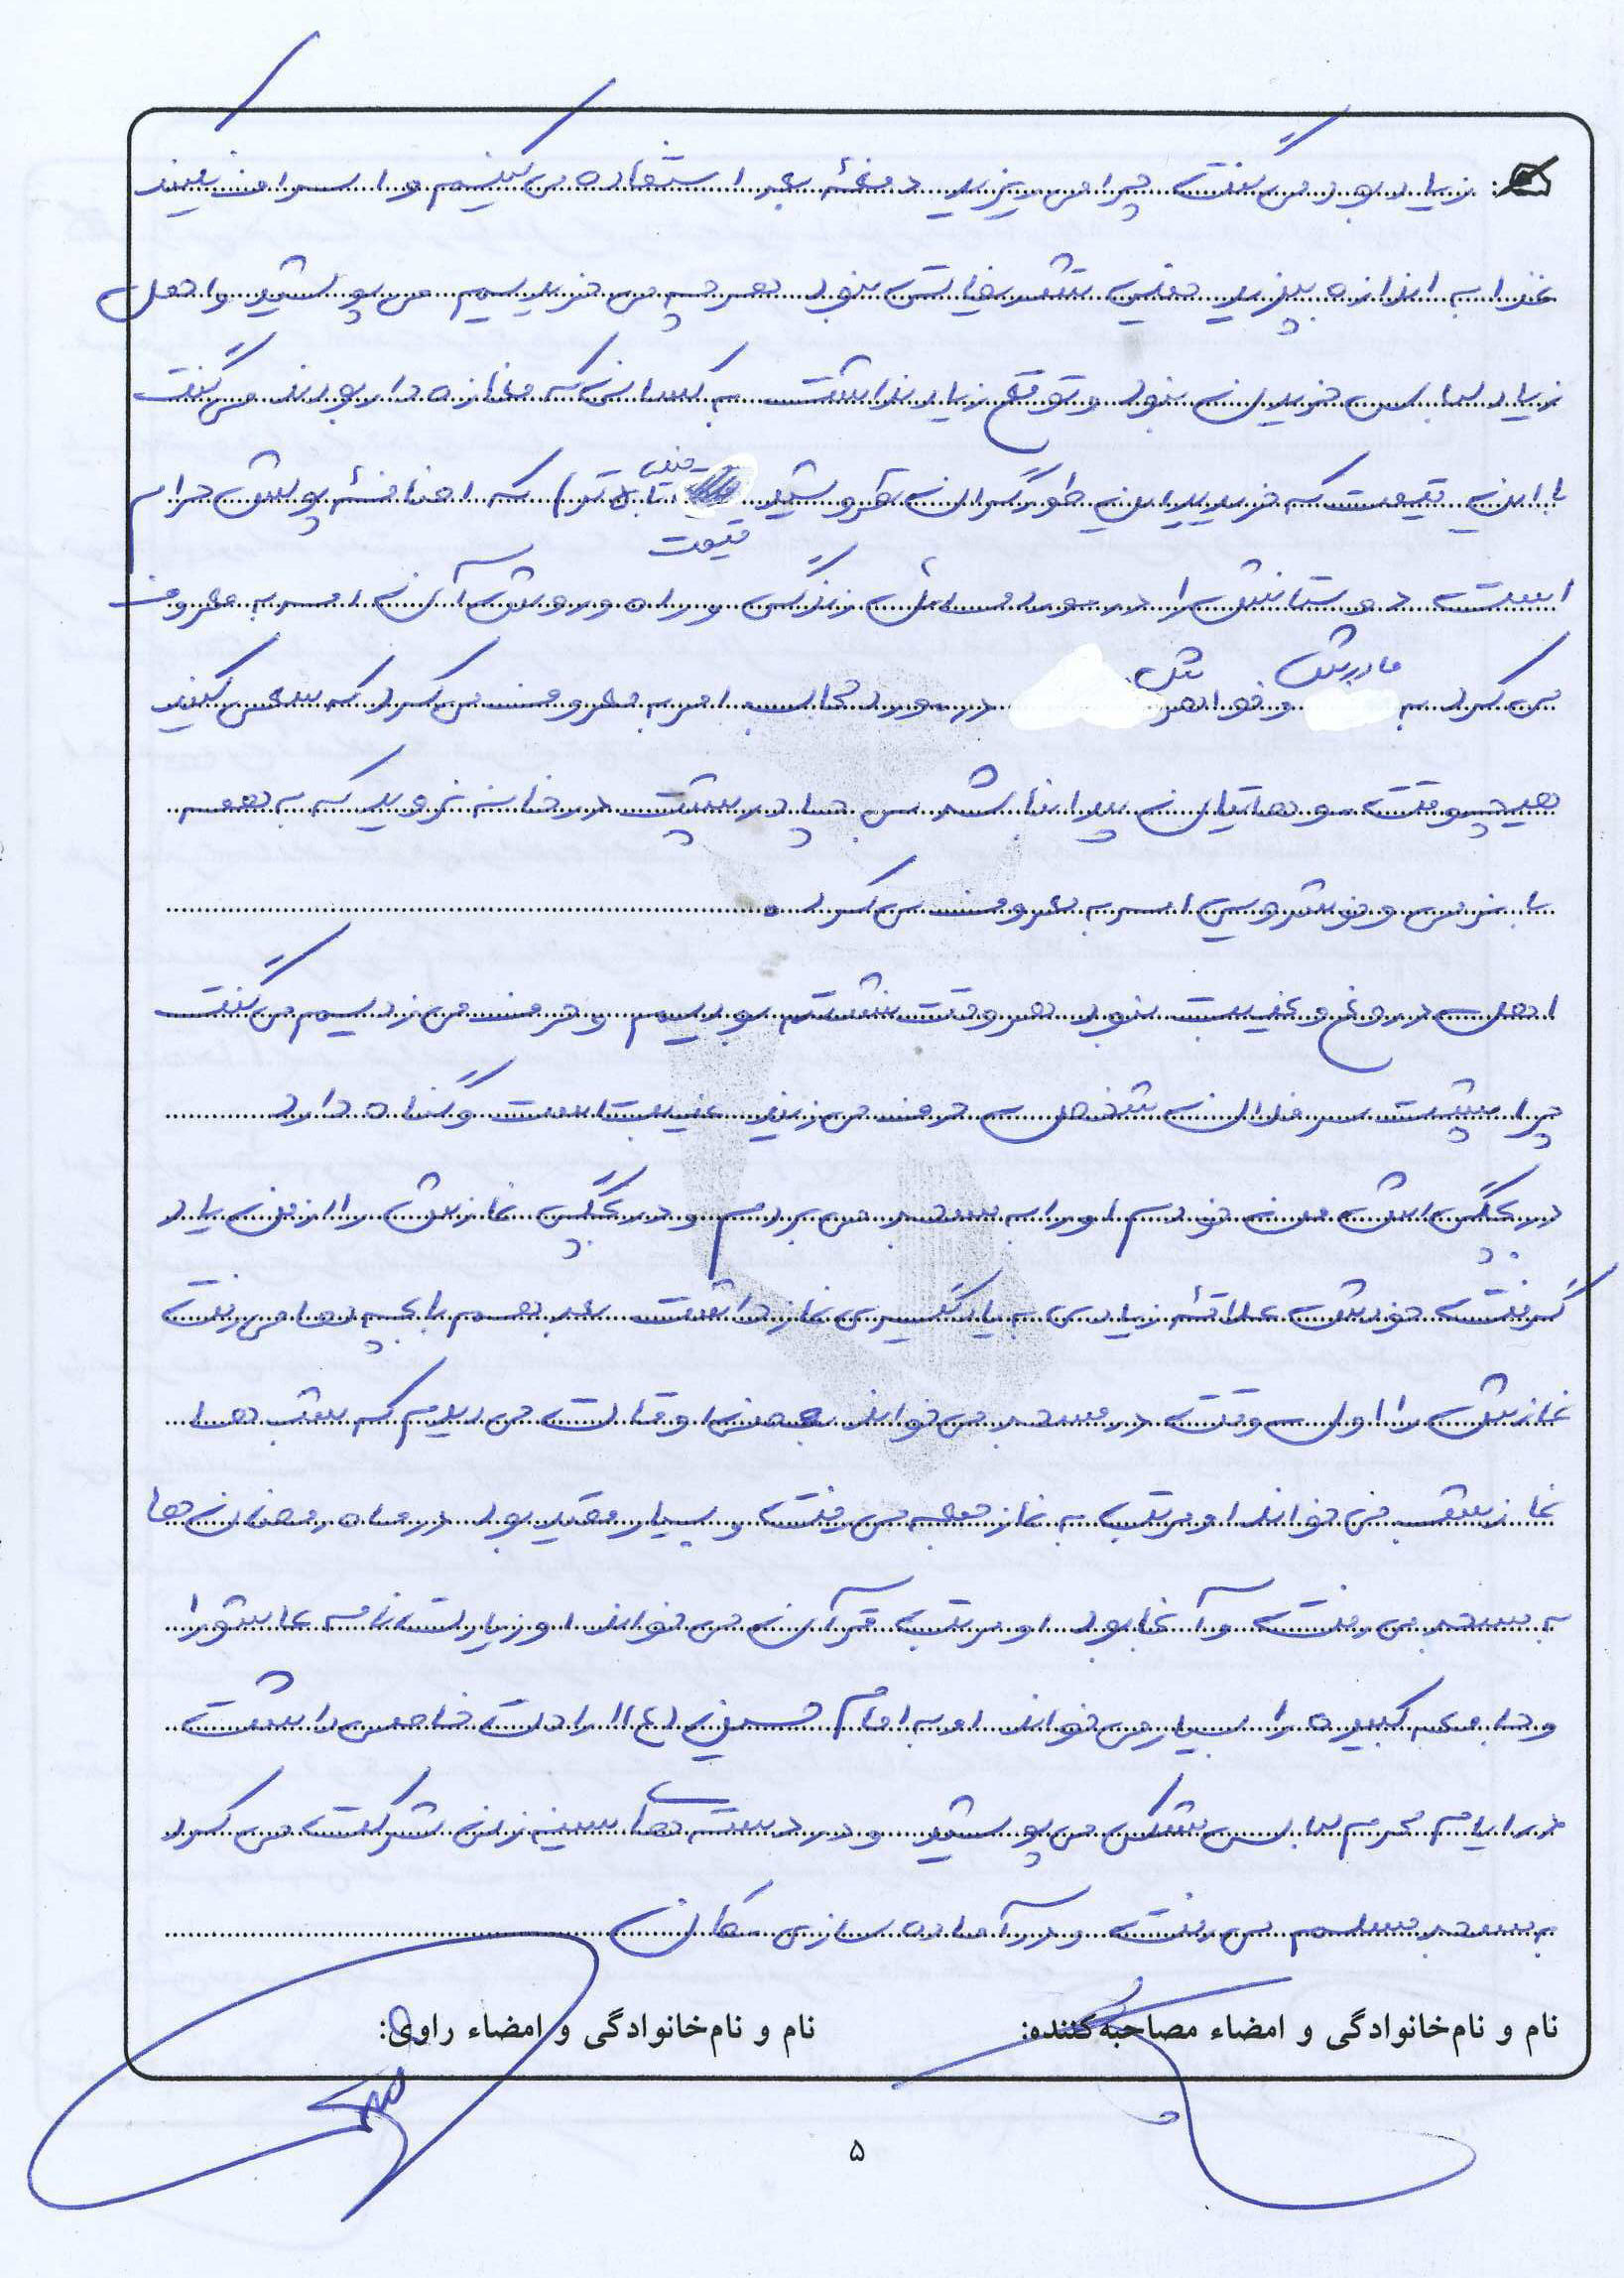 زیاد بود می گفت چرا می ریزید دفعهٔ بعد استفاده می کنیم و اسراف نکنید
غذا به اندازه بپزید خیلی تشریفاتی نبود هرچه می خریدیم می پوشید و اهل
زیاد لباس خریدن نبود و توقع زیاد نداشت به کسانی که مغازه دار بودند می گفت
با این قیمت که خریدید این طور گران نفروشید که اضافهٔ پولش حرام
قیمت
است دوستانش را در مورد مسائل زندگی و راه و روش آن امر به معروف
می کرد به مادرش و خواهرش در مورد حجاب امر به معروف می کرد که سعی کنید
هیچوقت موهایتان پیدا نباشد بی چادر پشت در خانه نروید که به همه
با نرمی و خوشرویی امر به معروف می کرد.
اهل دروغ و غیبت نبود هر وقت نشسته بودیم و حرف می زدیم می گفت
چرا پشت سر فلان شخص حرف می زنید غیبت است و گناه دارد
در بچگی اش من خودم او را به مسجد می بردم و در بچگی نمازش را از من یاد
گرفت خودش علاقهٔ زیادی به یادگیری نماز داشت بعد هم با بچه ها می رفت
نمازش را اول وقت در مسجد می خواند بعضی اوقات می دیدم که شب ها
نماز شب می خواند او مرتب به نماز جمعه می رفت و بسیار مقید بود در ماه رمضان ها
به مسجد می رفت و آنجا بود او مرتب قرآن می خواند او زیارت نامه عاشورا
و جامعه کبیره را بسیار می خواند او به امام حسین (ع) ارادت خاصی داشت
در ایام محرم لباس مشکی می پوشید و در دسته های سینه زنی شرکت می کرد
به مسجد مسلم می رفت و در آماده سازی مکان
نام و نام‌خانوادگی و امضاء مصاحبه‌کننده: نام و نام‌خانوادگی و امضاء راوی:
۵